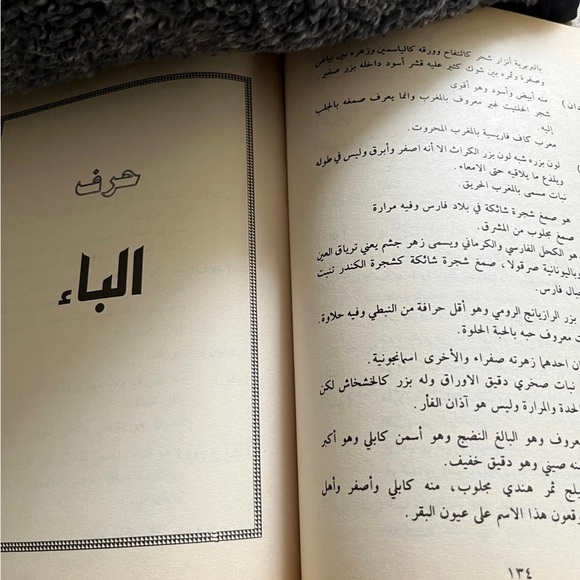 بالبربرية أنزار شجر كالتفاح وورقه كالياسمين وزهره بين بياض
وصفرة وثمره بين شوك كثير عليه قشر أسود داخله بزر صغير.
منه أبيض وأسود وهو أقوى
شجر الحلتيت غير معروف بالمغرب وانما يعرف صمغه بالجلب
إليه.
معرب كاف فارسية بالمغرب المحروت.
لون بزره شبه لون بزر الكراث الا أنه اصفر وأبرق وليس في طوله
ويلذع ما يلاقيه حتى الامعاء.
نبات مسمى بالمغرب الحريق.
هو صمغ شجرة شائكة في بلاد فارس وفيه مرارة
صمغ مجلوب من المشرق.
هو الكحل الفارسي والكرماني ويسمى زهر جشم يعني ترياق العين
وباليونانية صرقولا، صمغ شجرة شائكة كشجرة الكندر تنبت
فارس.
بزر الرازيانج الرومي وهو أقل حرافة من النبطي وفيه حلاوة.
معروف حبه بالحبة الحلوة.
احدهما زهرته صفراء والأخرى اسمانجونية.
نبات صخري دقيق الاوراق وله بزر كالخشخاش لكن
الحدة والمرارة وليس هو آذان الفأر.
وهو البالغ النضج وهو أسمن كابلي وهو أكبر
صيني وهو دقيق خفيف.
ثمر هندي مجلوب، منه كابلي وأصفر وأهل
هذا الاسم على عيون البقر.
١٣٤
حرف
الباء